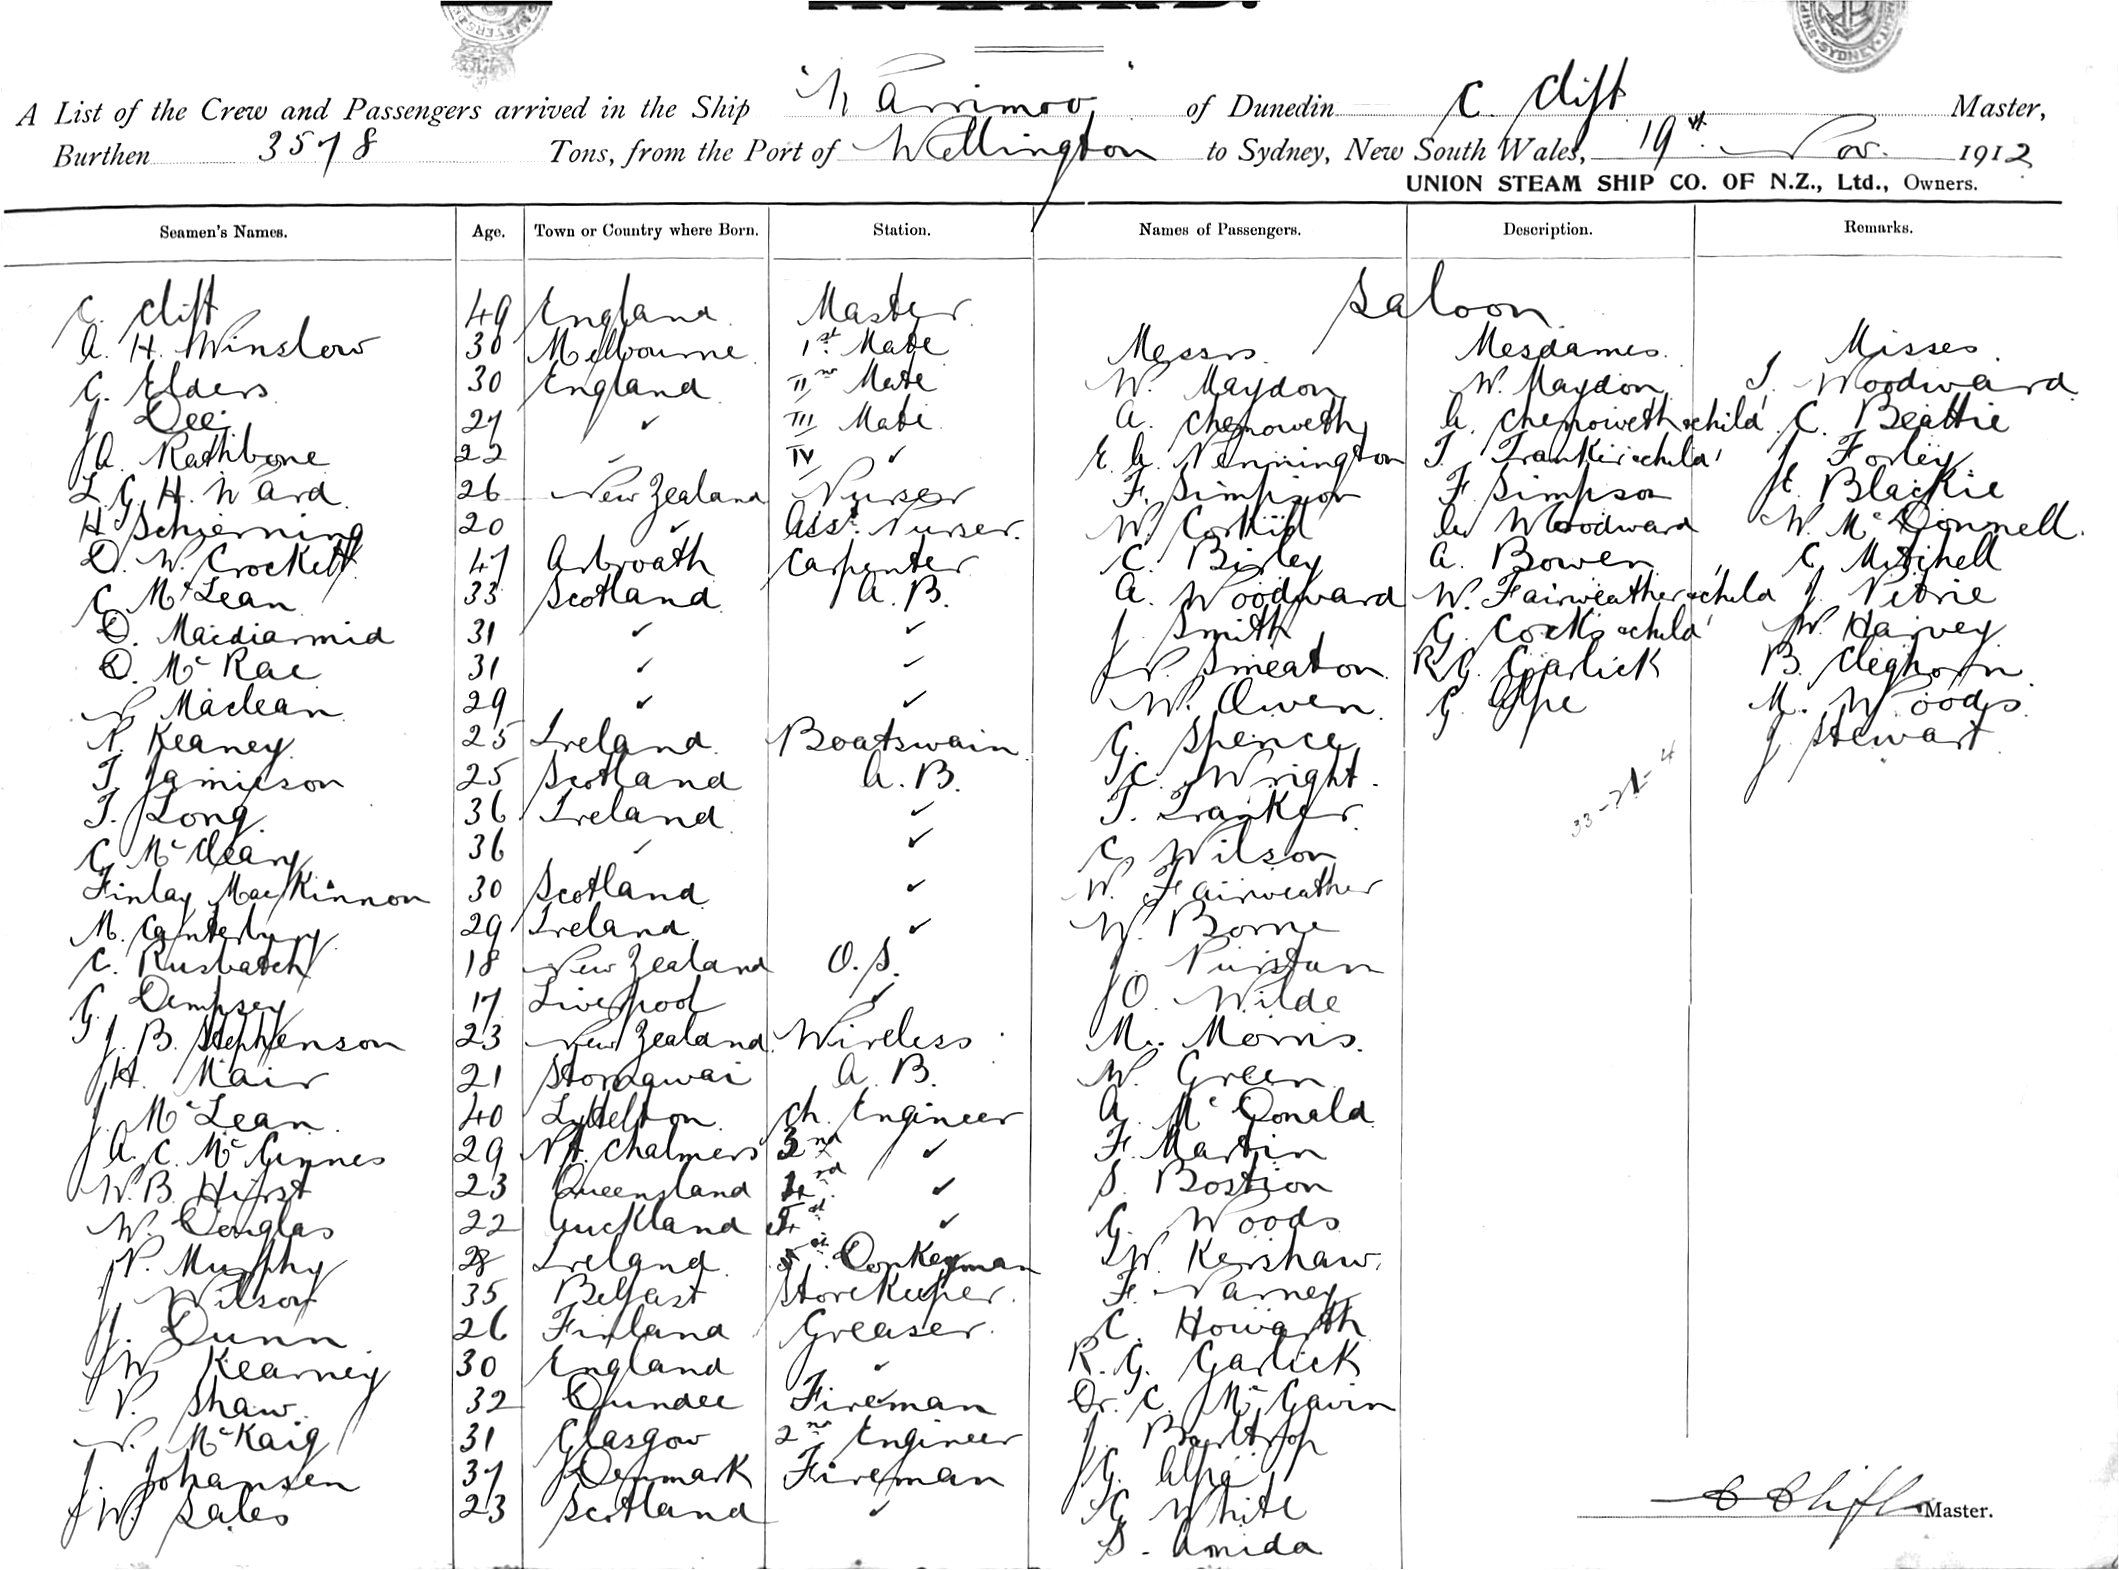 A List of the Crew and Passengers arrived in the Ship "Warrimoo" of Dunedin C. Clift Master,
Burthen 3578 Tons, from the Port of Wellington to Sydney, New South Wales, 19th Nov. 1912
UNION STEAM SHIP CO. OF N.Z., Ltd., Owners.
Seamen's Names. Age. Town or Country where Born. Station. Names of Passengers. Description. Remarks.
Saloon
C. Clift 49 England Master
A. H. Winslow 30 Melbourne 1st Mate Messrs. Mesdames. Misses.
G. Elders 30 England IInd Mate W. Maydon W. Maydon J. Woodward
J. Dee 27 ✓ III Mate A. Chenoweth A. Chenoweth & child C. Beattie
J A. Rathbone 22 ✓ IV ✓ E. A. Nennington T. Tranker & child J. Forley
L. G. H. Ward 26 New Zealand Purser F. Simpson F. Simpson H. Blackie
H. Schierning 20 ✓ Asst. Purser. W. Corkill A. Woodward W. McDonnell.
D. W. Crockett 47 Arbroath Carpenter C. Birley A. Bowen C. Mitchell
C. McLean 33 Scotland A. B. A. Woodward W. Fairweather & child J. Petrie
D. Macdiarmid 31 ✓ ✓ J. Smith G. Cocks & child W. Harvey
D. McRae 31 ✓ ✓ J. P. Smeaton R. G. Garlick B. Cleghorn
N. Maclean 29 ✓ ✓ W. Owen G. Alpe M. Woods
P. Keaney 25 Ireland Boatswain G. Spence J. Stewart
T. Jamieson 25 Scotland A. B. C. Wright.
T. Long 36 Ireland ✓ T. Tranker
C. McCleary 36 ✓ ✓ C. Wilson
Finlay MacKinnon 30 Scotland ✓ W. Fairweather
M. Canterbury 29 Ireland ✓ W. Borne
C. Rusbatch 18 New Zealand O. S. J. Purstan
G. Dempsey 17 Liverpool ✓ J O. Wilde
J. B. Stephenson 23 New Zealand Wireless M. Morris.
J H. Mair 21 Stornaway A. B. W. Green
J. McLean 40 Lyttelton Ch. Engineer A. McDonald
A. C. McGinnes 29 Pt. Chalmers ✓ F. Martin
W. B. Hirst 23 Queensland ✓ S. Bostion
W. Douglas 22 Auckland ✓ G. Woods
P. Murphy 28 Ireland Donkeyman W. Kershaw.
J. Wilson 35 Belfast Storekeeper. F. Varney
J. Dunn 26 Finland Greaser. C. Howarth
J W. Kearney 30 England ✓ R. G. Garlick
P. Shaw. 32 Dundee Fireman Dr. C. McGavin
N. McKaig 31 Glasgow 2nd Engineer J. Barltrop
J. Johansen 37 Denmark Fireman G. Alpe
J W. Sales 23 Scotland ✓ C. White
S. Amida
C Clift Master.